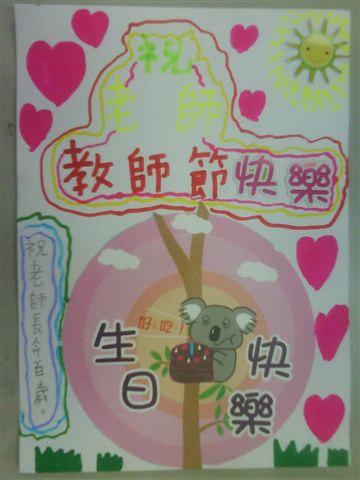 祝
老師
教師節快樂
祝老師長命百歲。
好吃！
生日
快樂